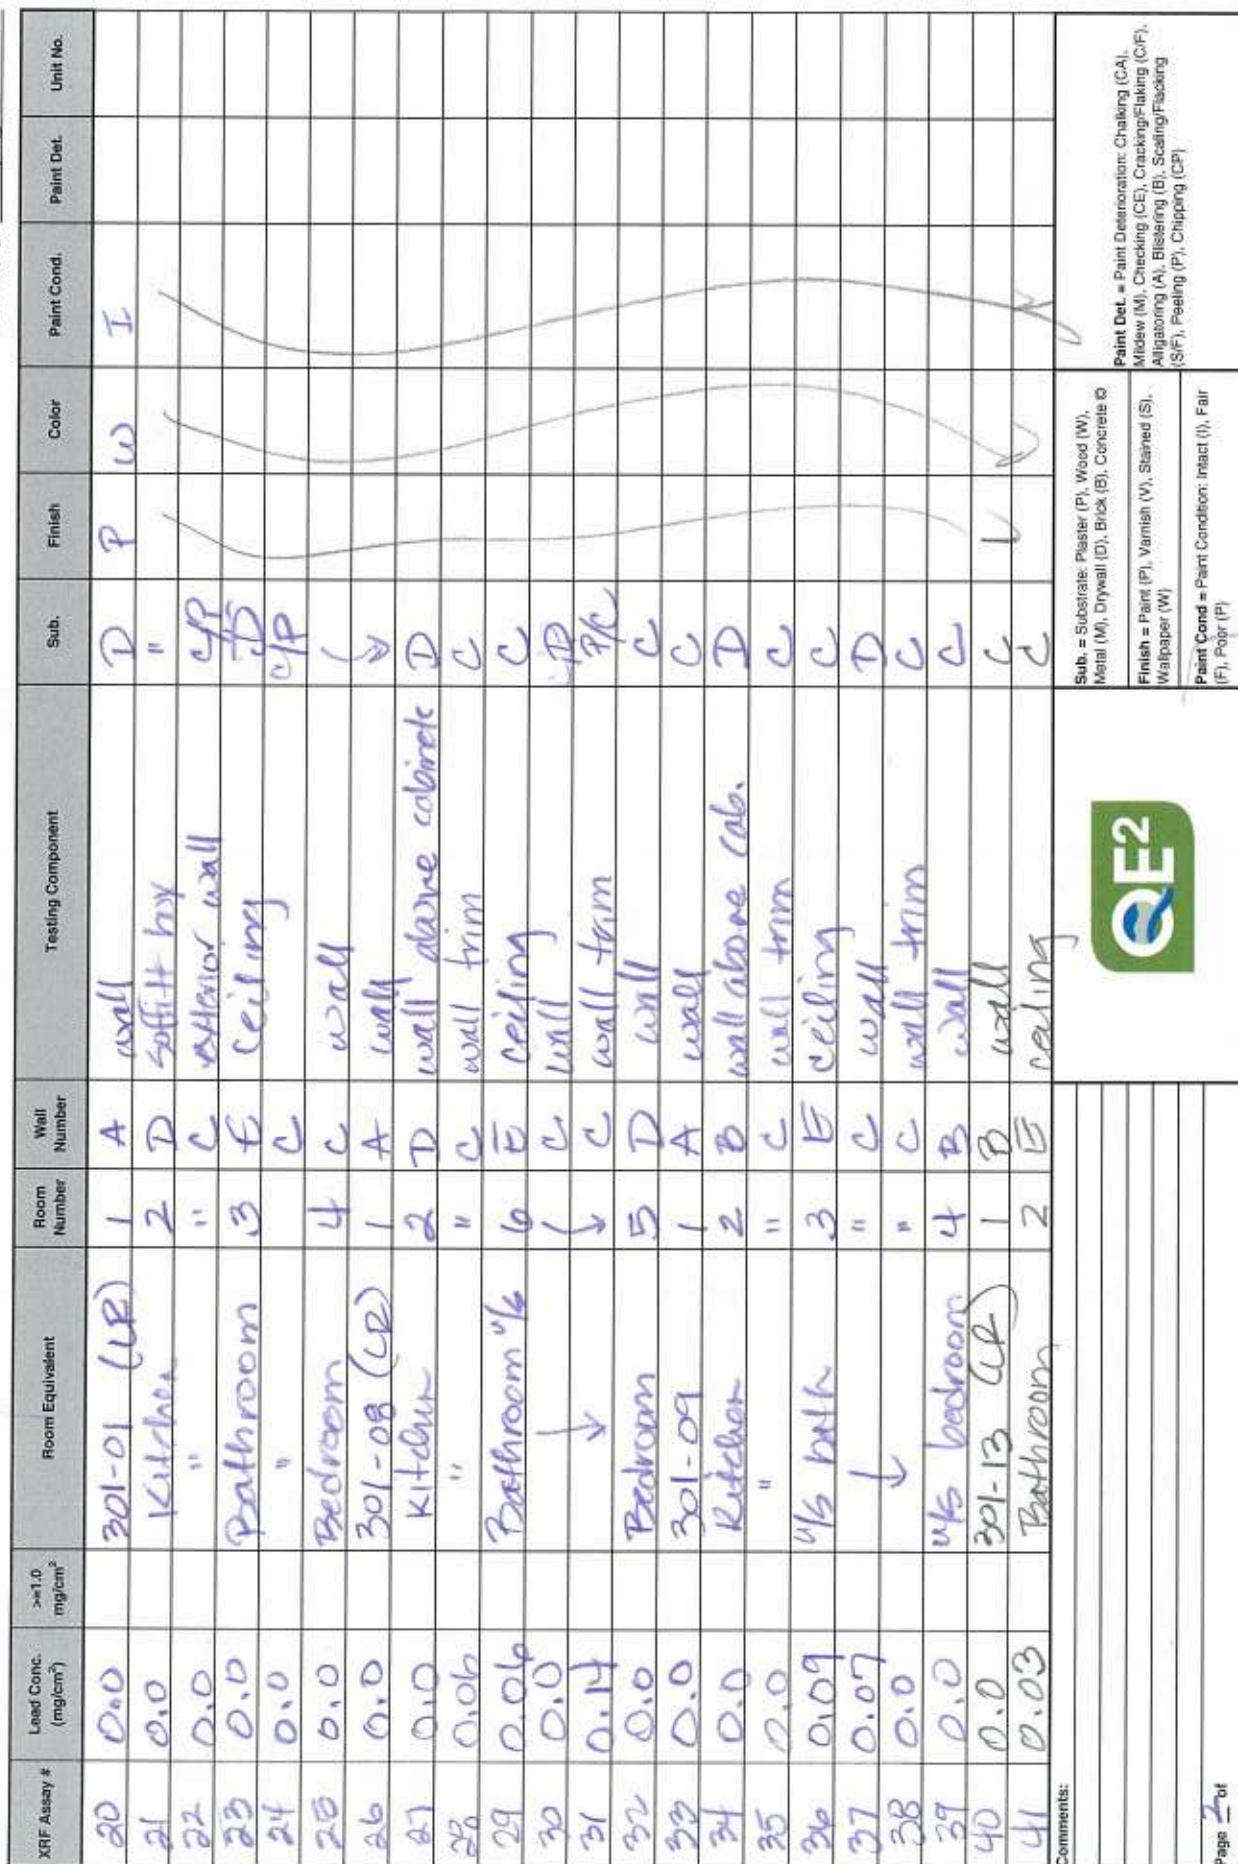 XRF Assay # Lead Conc. (mg/cm²) >=1.0 mg/cm² Room Equivalent Room Number Wall Number Testing Component Sub. Finish Color Paint Cond. Paint Det. Unit No.
20 0.0 301-01 (LR) 1 A wall D P W I
21 0.0 Kitchen 2 D soffitt box "
22 0.0 " " C exterior wall C/P
23 0.0 Bathroom 3 E ceiling
24 0.0 " C C/P
25 0.0 Bedroom 4 C wall
26 0.0 301-08 (LR) 1 A wall
27 0.0 Kitchen 2 D wall above cabinets D
28 0.06 " " C wall trim C
29 0.06 Bathroom u/s 6 E ceiling C
30 0.0 C wall
31 0.14 C wall trim P/C
32 0.0 Bedroom 5 D wall C
33 0.0 301-09 1 A wall C
34 0.0 Kitchen 2 B wall above cab. D
35 0.0 " " C wall trim C
36 0.09 u/s bath 3 E ceiling C
37 0.07 " C wall D
38 0.0 " C wall trim C
39 0.0 u/s bedroom 4 B wall C
40 0.0 301-13 (LR) 1 B wall C
41 0.03 Bathroom 2 E ceiling C
Comments:
Page 2 of
QE2
Sub. = Substrate: Plaster (P), Wood (W),
Metal (M), Drywall (D), Brick (B), Concrete ©
Finish = Paint (P), Varnish (V), Stained (S),
Wallpaper (W)
Paint Cond = Paint Condition: Intact (I), Fair
(F), Poor (P)
Paint Det. = Paint Deterioration: Chalking (CA),
Mildew (M), Checking (CE), Cracking/Flaking (C/F),
Alligatoring (A), Blistering (B), Scaling/Flacking
(S/F), Peeling (P), Chipping (CP)